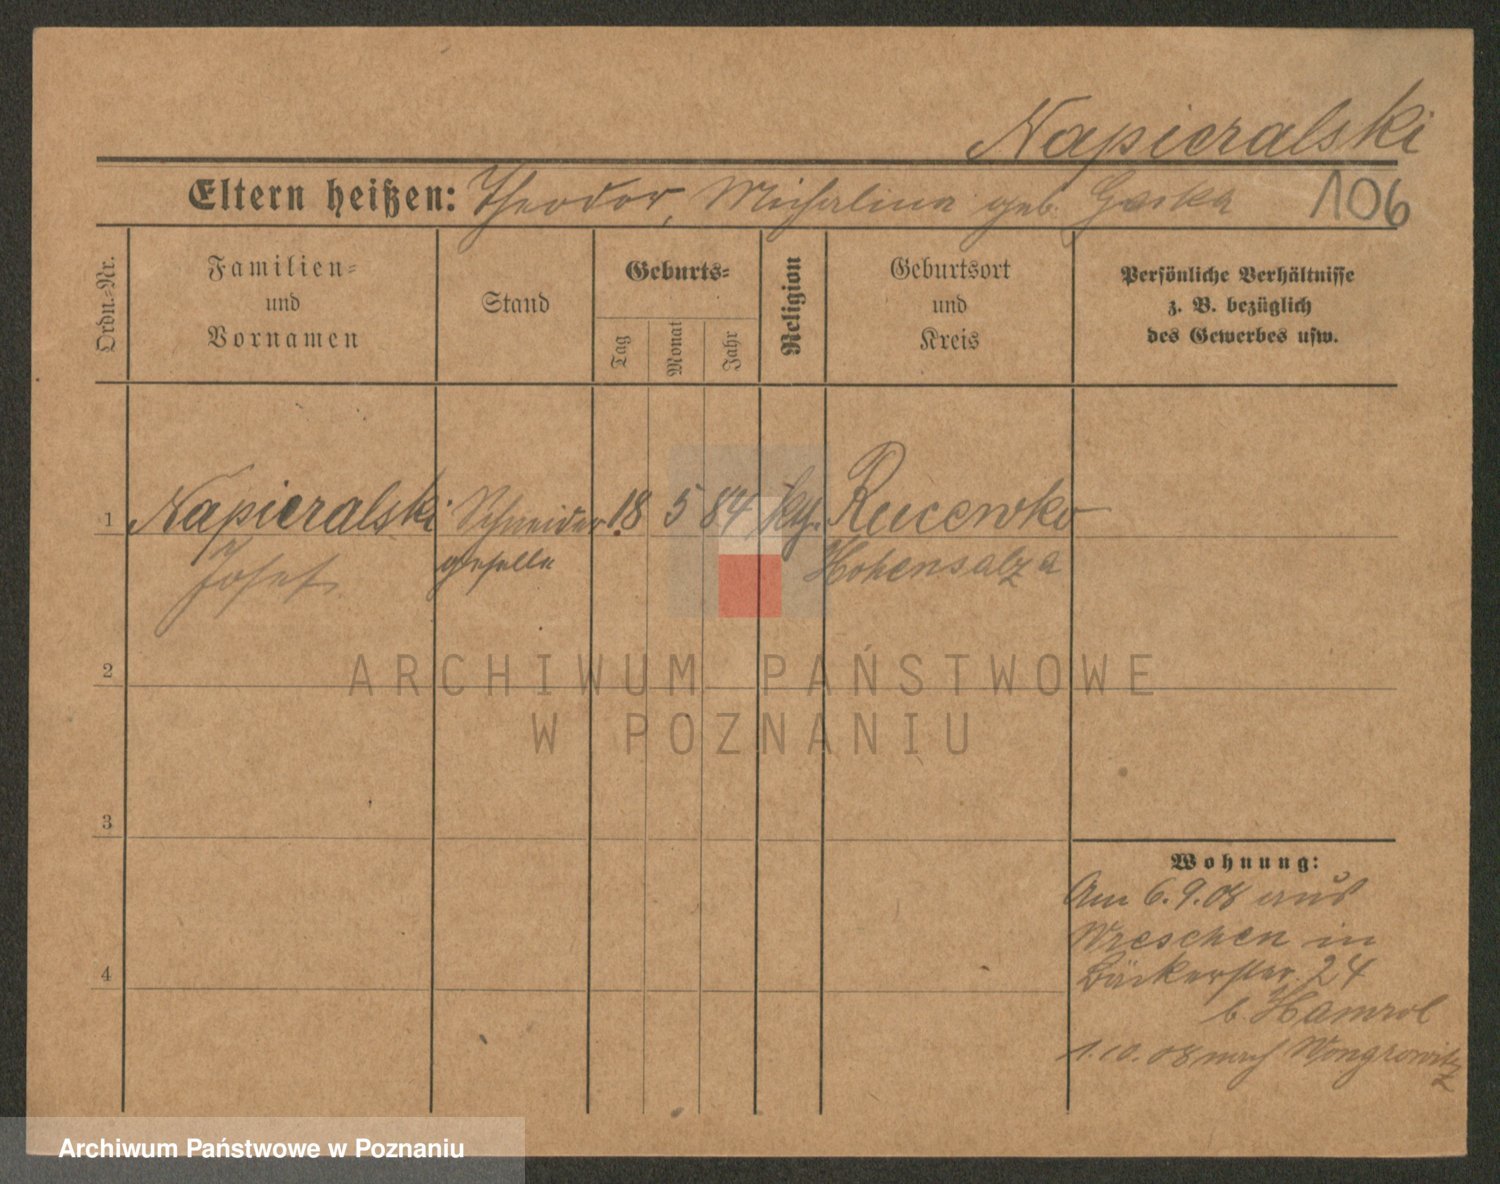 Napieralski
Eltern heißen: Theodor, Michalina geb. Gaska 106
Ordn.-Nr.
Familien-
und
Vornamen
Stand
Geburts-
Tag
Monat
Jahr
Religion
Geburtsort
und
Kreis
Persönliche Verhältnisse
z. B. bezüglich
des Gewerbes usw.
1 Napieralski Schneider 18. 5 84 kth. Rucewko
Josef geselle Hohensalza
2
ARCHIWUM PAŃSTWOWE
W POZNANIU
3
Wohnung:
Am 6.9.08 aus
Wreschen in
4 Bäckerstr. 24
b. Hamrol
1.10.08 nach Wongrowitz
Archiwum Państwowe w Poznaniu